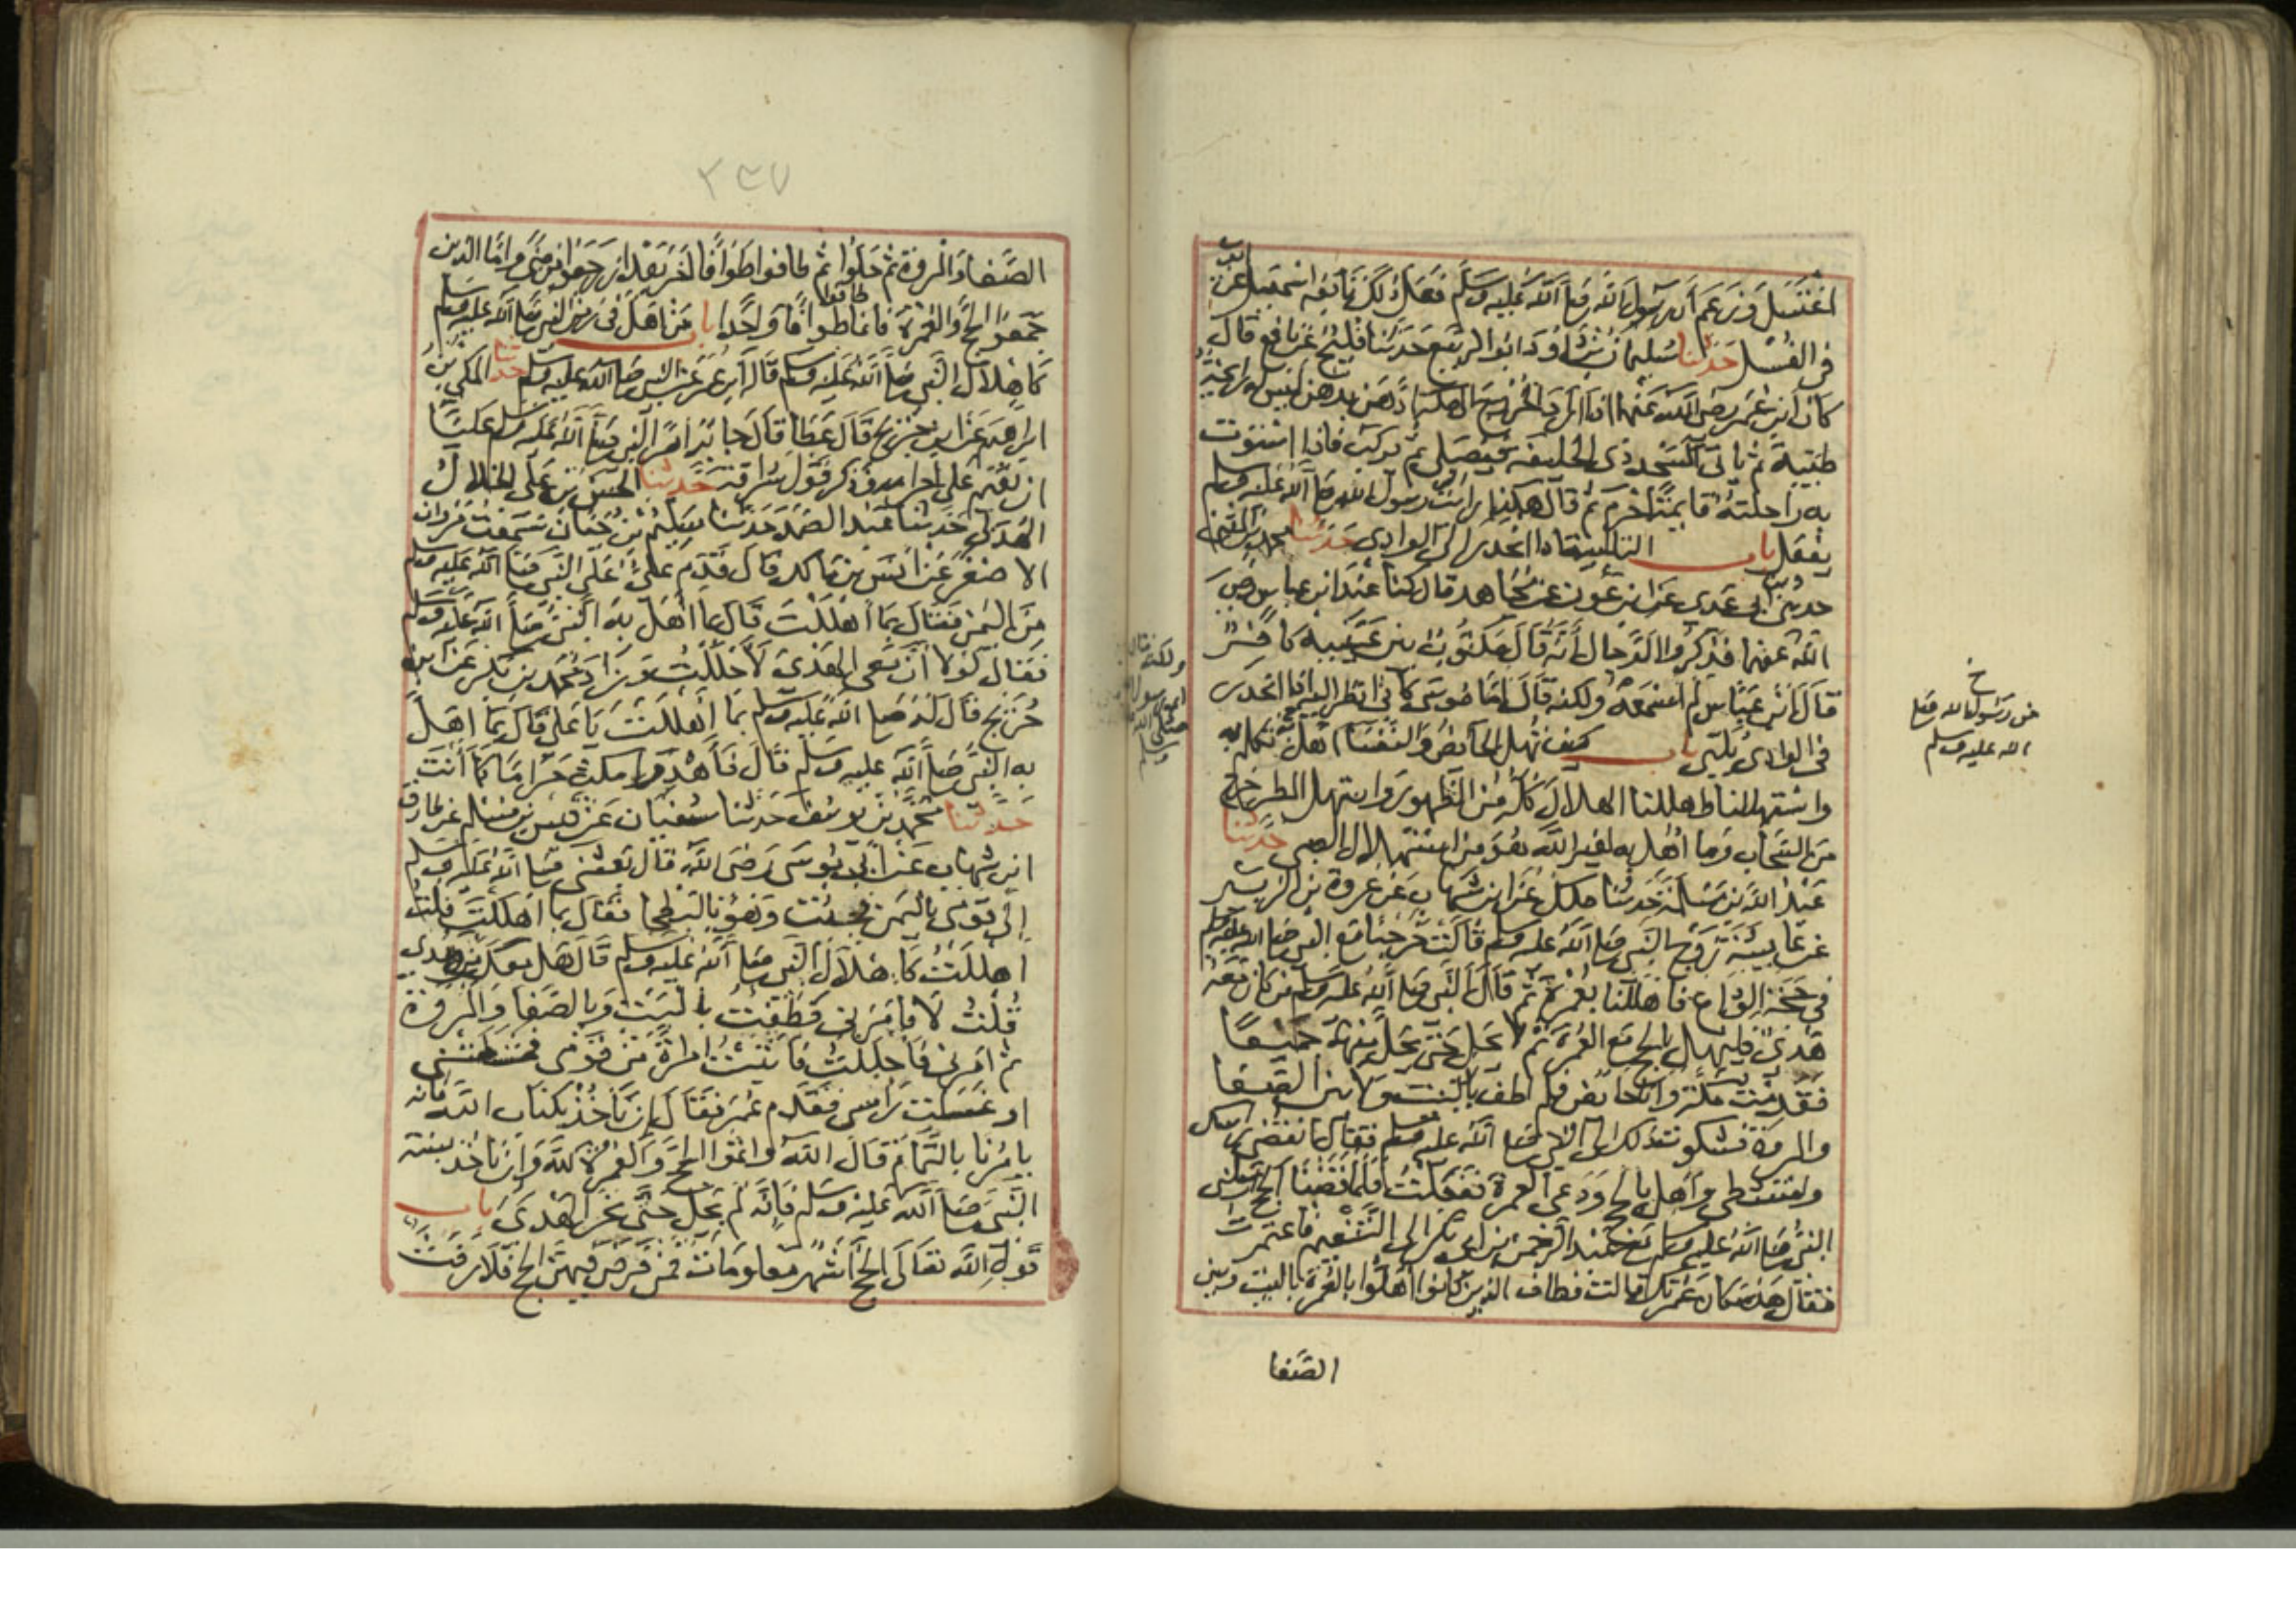 اغتسل وزعم أن رسول الله صلى الله عليه وسلم فعل ذلك تابعه اسمعيل عن ايوب
في الغسل حدثنا سليمان بن داود ابو الربيع حدثنا فليح عن نافع قال
كان ابن عمر رضي الله عنهما اذا اراد الخروج الى مكة ادهن بدهن ليس له رائحة
طيبة ثم يأتي مسجد ذي الحليفة فيصلي ثم يركب فاذا استوت
به راحلته قايمة احرم ثم قال هكذا رايت رسول الله صلى الله عليه وسلم
يفعل باب التلبية اذا انحدر في الوادي حدثنا محمد بن المثنى
حدثني ابن ابي عدي عن ابن عون عن مجاهد قال كنا عند ابن عباس رضي
الله عنهما فذكروا الدجال أنه قال مكتوب بين عينيه كافر
قال ابن عباس لم اسمعه ولكنه قال اما موسى كاني انظر اليه اذا انحدر
في الوادي يلبي باب كيف تهل الحائض والنفسا اهل تكلم به
واستهللنا اهللنا الهلال كله من الظهور واستهل المطر خرج
من السحاب وما اهل به لغير الله وهو من استهلال الصبي حدثنا
عبد الله بن مسلمة حدثنا ملك عن ابن شهاب عن عروة بن الزبير
عن عايشة زوج النبي صلى الله عليه وسلم قالت خرجنا مع النبي صلى الله عليه وسلم
في حجة الوداع فاهللنا بعمرة ثم قال النبي صلى الله عليه وسلم من كان معه
هدي فليهل بالحج مع العمرة ثم لا يحل حتى يحل منهما جميعا
فقدمت مكة وانا حائض فلم اطف بالبيت ولا بين الصفا
والمروة فشكوت ذلك الى النبي صلى الله عليه وسلم فقال انقضي راسك
وامتشطي واهلي بالحج ودعي العمرة ففعلت فلما قضينا الحج ارسلني
النبي صلى الله عليه وسلم مع عبد الرحمن بن ابي بكر الى التنعيم فاعتمرت
فقال هذه مكان عمرتك قالت فطاف الذين كانوا اهلوا بالعمرة بالبيت وبين
الصفا
خ
من رسول الله صلى
الله عليه وسلم
٢٣٧
الصفا والمروة ثم حلوا ثم طافوا طوافا اخر بعد ان رجعوا من منى واما الذين
جمعوا الحج والعمرة فانما طافوا طوافا واحدا باب من اهل في زمن النبي صلى الله عليه وسلم
كاهلال النبي صلى الله عليه وسلم قاله ابن عمر عن النبي صلى الله عليه وسلم حدثنا المكي بن
ابراهيم عن ابن جريج قال عطا قال جابر امر النبي صلى الله عليه وسلم عليا
ان يقيم على احرامه وذكر قول سراقة حدثنا الحسن بن علي الخلال
الهذلي حدثنا عبد الصمد حدثنا سليم بن حيان سمعت مروان
الاصفر عن انس بن مالك قال قدم علي على النبي صلى الله عليه وسلم
من اليمن فقال بما اهللت قال بما اهل به النبي صلى الله عليه وسلم
فقال لولا ان معي الهدي لاحللت وزاد محمد بن بكر عن ابن
جريج قال له صلى الله عليه وسلم بما اهللت يا علي قال بما اهل
به النبي صلى الله عليه وسلم قال فأهد وامكث حراما كما أنت
حدثنا محمد بن يوسف حدثنا سفيان عن قيس بن مسلم عن طارق
ابن شهاب عن ابي موسى رضي الله قال بعثني صلى الله عليه وسلم
الى قومي باليمن فجئت وهو بالبطحا فقال بما اهللت قلت
اهللت كاهلال النبي صلى الله عليه وسلم قال هل معك من هدي
قلت لا فامرني فطفت بالبيت وبالصفا والمروة
ثم امرني فاحللت فاتيت امراة من قومي فمشطتني
او غسلت راسي فقدم عمر فقال ان ناخذ بكتاب الله فانه
يامرنا بالتمام قال الله واتموا الحج والعمرة لله وان ناخذ بسنة
النبي صلى الله عليه وسلم فانه لم يحل حتى نحر الهدي باب
قول الله تعالى الحج أشهر معلومات فمن فرض فيهن الحج فلا رفث